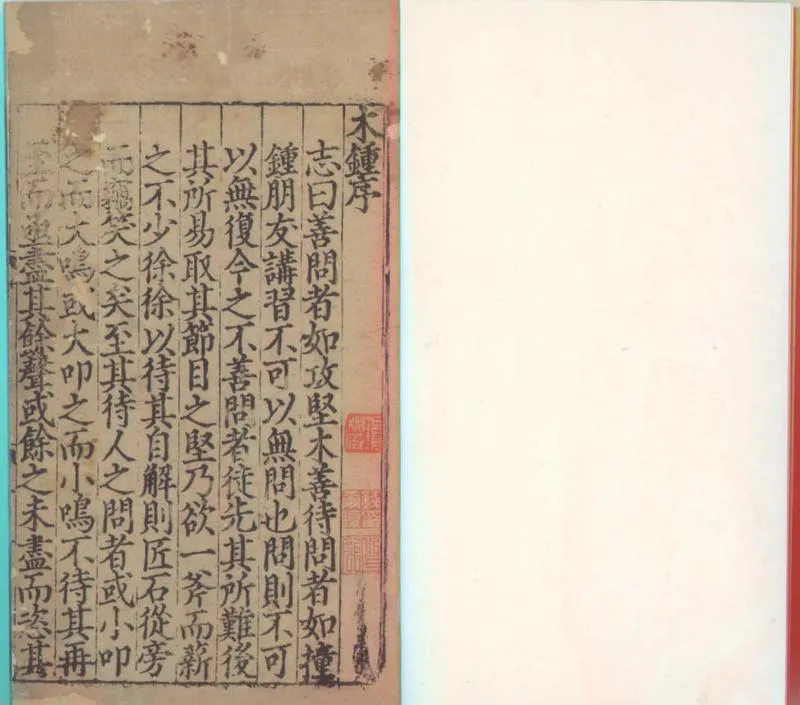 木鍾序
志曰善問者如攻堅木善待問者如撞
鍾朋友講習不可以無問也問則不可
以無復今之不善問者徒先其所難後
其所易取其節目之堅乃欲一斧而薪
之不少徐徐以待其自解則匠石從旁
而竊笑之矣至其待人之問者或小叩
之而大鳴或大叩之而小鳴不待其再
而亟盡其餘聲或餘之未盡而恣其